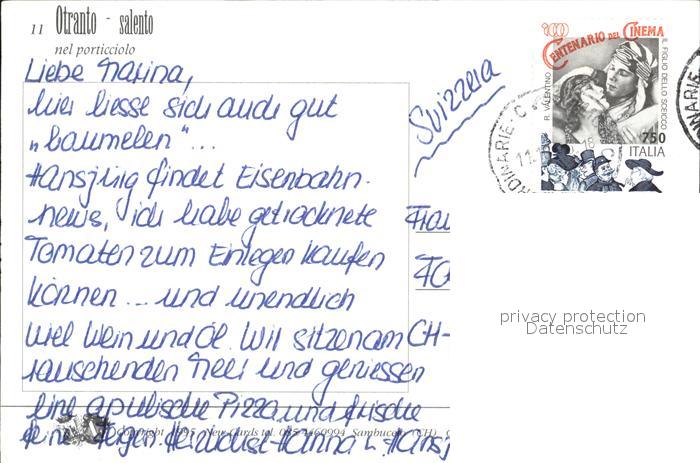 11 Otranto - salento
nel porticciolo
Liebe Marina,
hier liesse sich auch gut
„baumelen“...
Hansjürg findet Eisenbahn-
news, ich habe getrocknete
Tomaten zum Einlegen kaufen
können... und unendlich
viel Wein und Öl. Wir sitzen am
rauschenden Meer und geniessen
eine apulische Pizza und frische
Feigen. Herzlichst Hanna & Hansj
Copyright 1995 New Cards tel. Sambuceto (CH)
Svizzera
Frau
CH-
100
CENTENARIO DEL CINEMA
R. VALENTINO
IL FIGLIO DELLO SCEICCO
750
ITALIA
privacy protection
Datenschutz